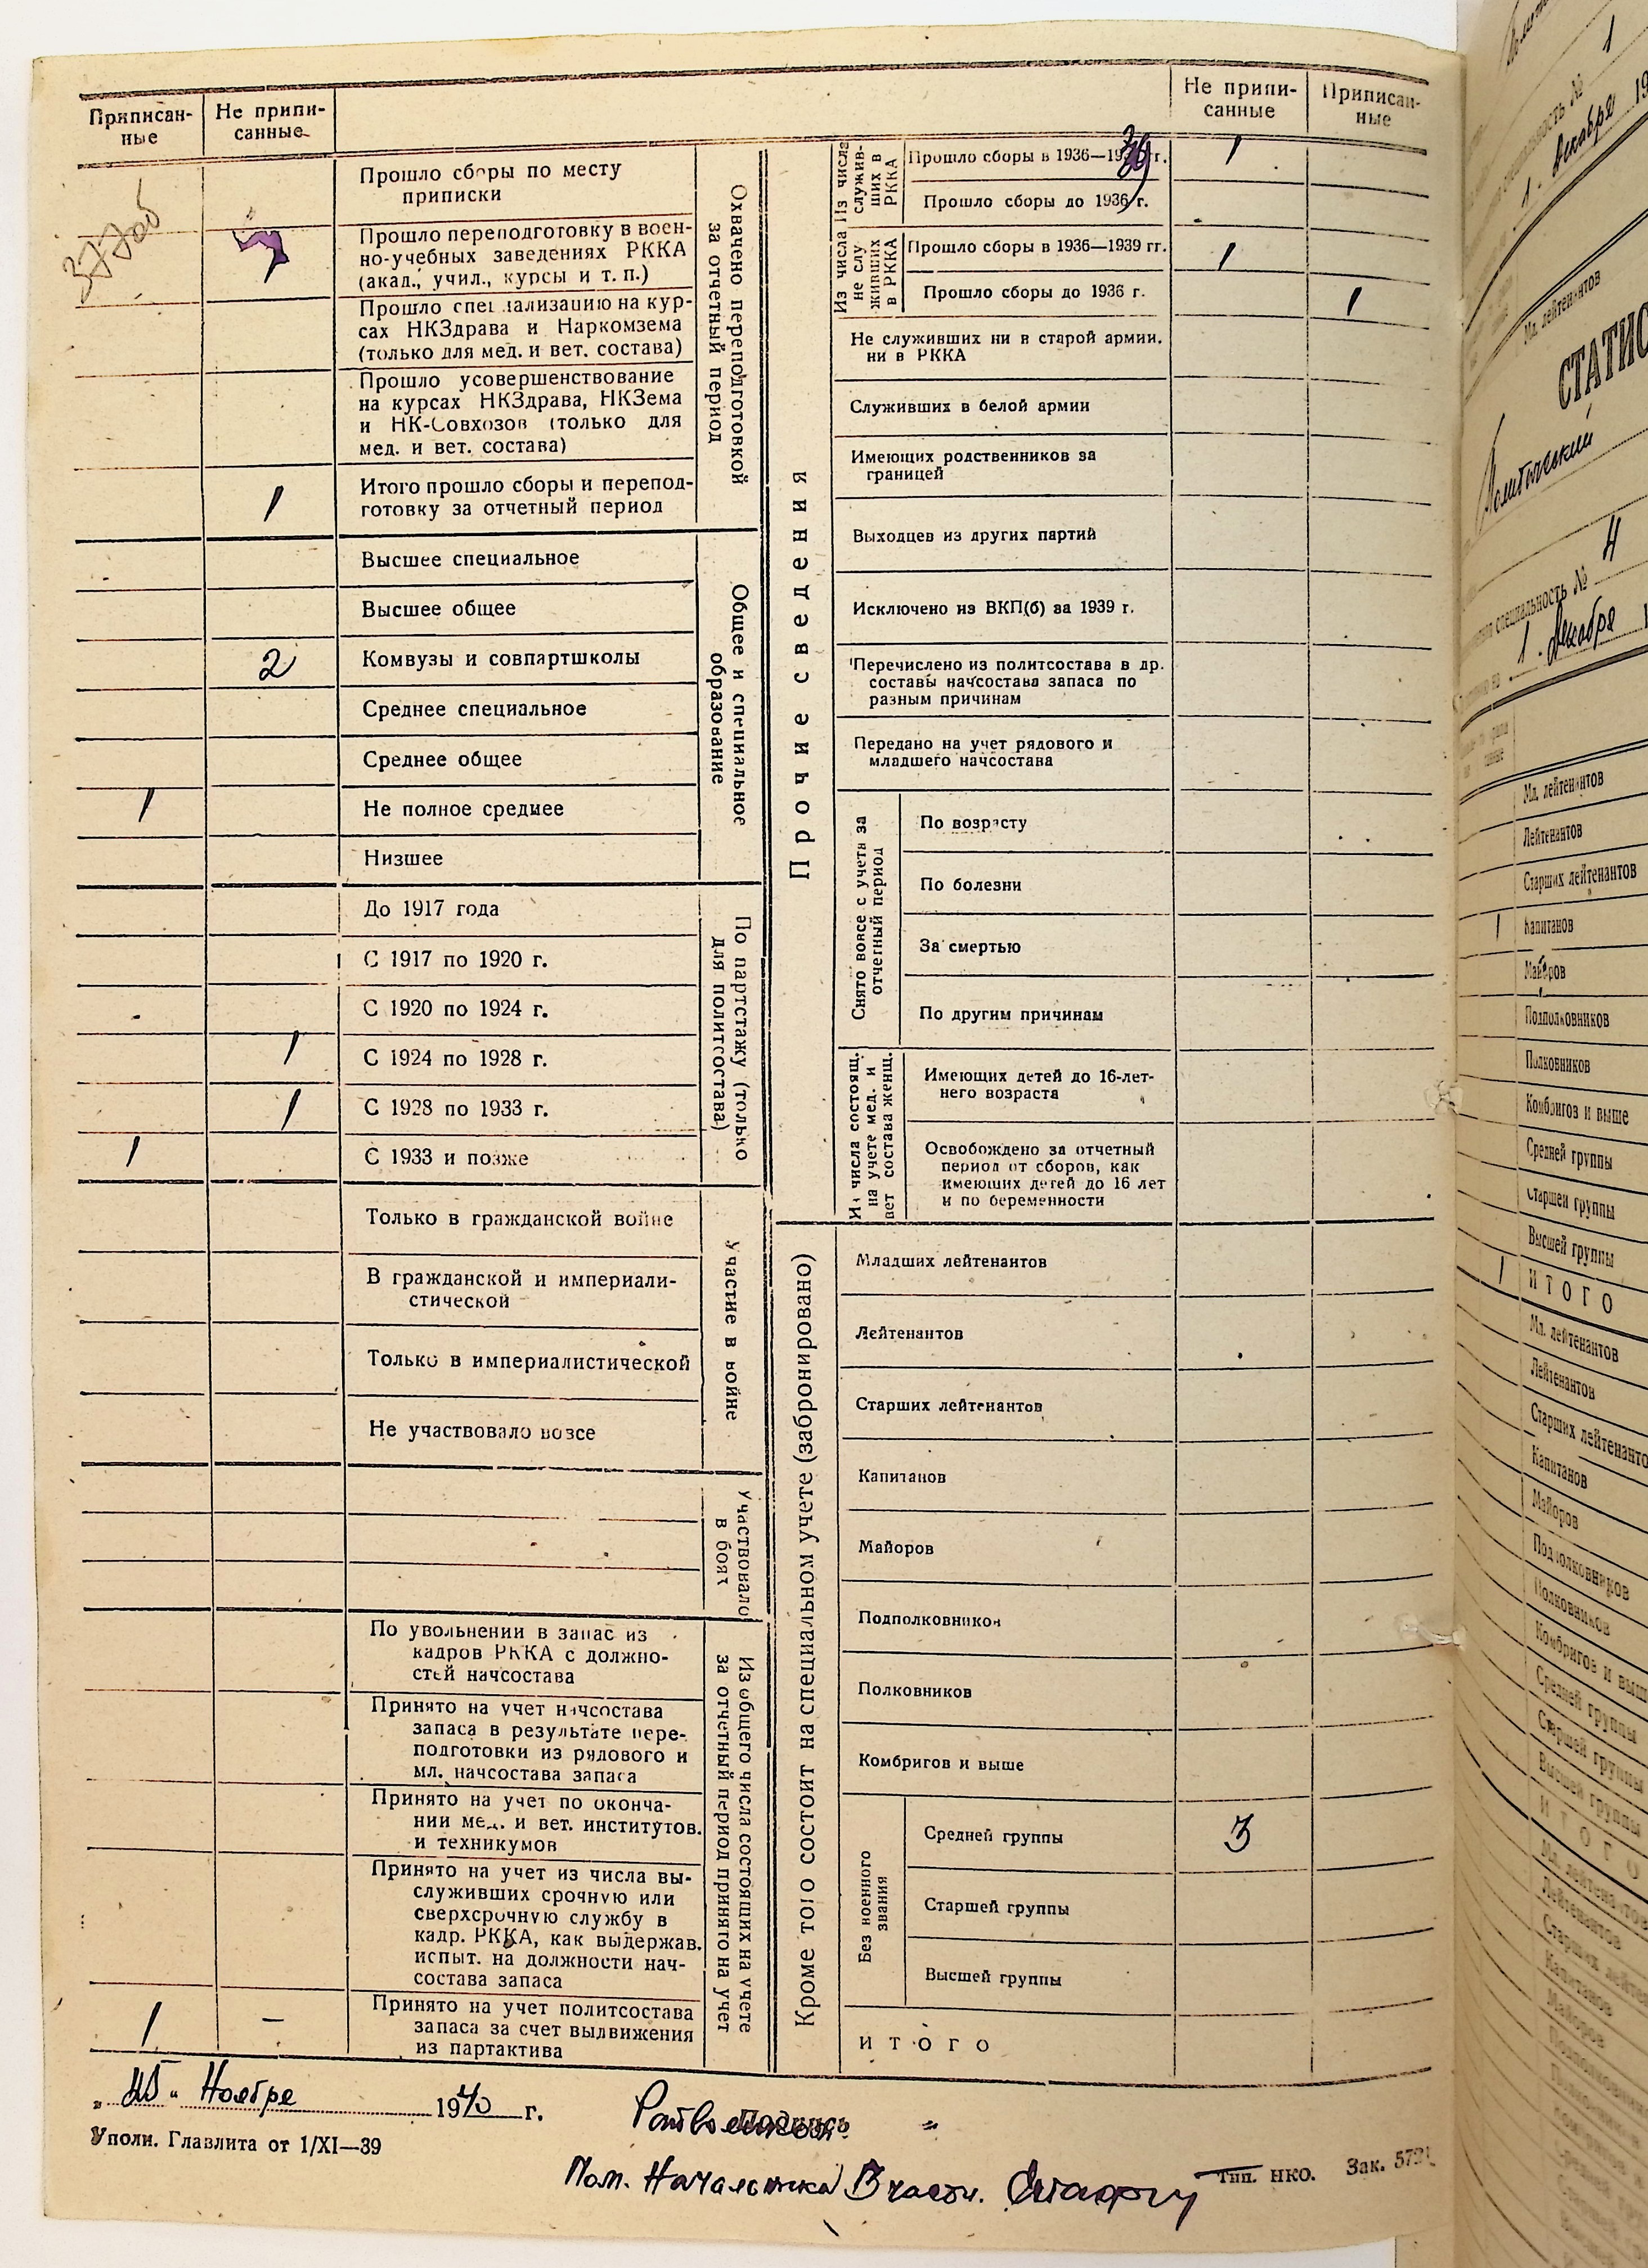 Приписан-
ные
Не припи-
санные
Прошло сборы по месту
приписки
Прошло переподготовку в воен-
но-учебных заведениях РККА
(акад., учил., курсы и т. п.)
Прошло специализацию на кур-
сах НКЗдрава и Наркомзема
(только для мед. и вет. состава)
Прошло усовершенствование
на курсах НКЗдрава, НКЗема
и НК-Совхозов (только для
мед. и вет. состава)
1
Итого прошло сборы и перепод-
готовку за отчетный период
Охвачено переподготовкой
за отчетный период
Высшее специальное
Высшее общее
2
Комвузы и совпартшколы
Среднее специальное
Среднее общее
1
Не полное среднее
Низшее
Общее и специальное
образование
До 1917 года
С 1917 по 1920 г.
С 1920 по 1924 г.
1
С 1924 по 1928 г.
1
С 1928 по 1933 г.
1
С 1933 и позже
По партстажу (только
для политсостава)
Только в гражданской войне
В гражданской и империали-
стической
Только в империалистической
Не участвовало вовсе
Участие в войне
Участвовало
в боях
По увольнении в запас из
кадров РККА с должно-
стей начсостава
Принято на учет начсостава
запаса в результате пере-
подготовки из рядового и
мл. начсостава запаса
Принято на учет по оконча-
нии мед. и вет. институтов
и техникумов
Принято на учет из числа вы-
служивших срочную или
сверхсрочную службу в
кадр. РККА, как выдержав.
испыт. на должности нач-
состава запаса
1
–
Принято на учет политсостава
запаса за счет выдвижения
из партактива
Из общего числа состоящих на учете
за отчетный период принято на учет
Не припи-
санные
Приписан-
ные
Прочие сведения
Из числа
служив-
ших в
РККА
Прошло сборы в 1936—1939 г.
1
Прошло сборы до 1936 г.
Из числа
не слу
живших
в РККА
Прошло сборы в 1936—1939 гг.
1
Прошло сборы до 1936 г.
1
Не служивших ни в старой армии,
ни в РККА
Служивших в белой армии
Имеющих родственников за
границей
Выходцев из других партий
Исключено из ВКП(б) за 1939 г.
Перечислено из политсостава в др.
составы начсостава запаса по
разным причинам
Передано на учет рядового и
младшего начсостава
Снято вовсе с учета за
отчетный период
По возрасту
По болезни
За смертью
По другим причинам
Из числа состоящ.
на учете мед. и
вет состава женщ.
Имеющих детей до 16-лет-
него возраста
Освобождено за отчетный
период от сборов, как
имеющих детей до 16 лет
и по беременности
Кроме того состоит на специальном учете (забронировано)
Младших лейтенантов
Лейтенантов
Старших лейтенантов
Капитанов
Майоров
Подполковников
Полковников
Комбригов и выше
Без военного
звания
Средней группы
3
Старшей группы
Высшей группы
ИТОГО
Ноября
1940 г.
Подпись
Уполн. Главлита от 1/XI—39
Пом. Начальника 3 части.
Тип. НКО. Зак.
1
специальность №
1. декабря 19
Мл. лейтенантов
СТАТИС
Политический
4
специальность №
1. декабря 1
Мл. лейтенантов
Лейтенантов
Старших лейтенантов
1
Капитанов
Майоров
Подполковников
Полковников
Комбригов и выше
Средней группы
Старшей группы
Высшей группы
1
ИТОГО
Мл. лейтенантов
Лейтенантов
Старших лейтенанто
Капитанов
Майоров
Подполковников
Полковников
Комбригов и выш
Средней группы
Старшей группы
Высшей группы
ИТОГО
Мл. лейтенантов
Лейтенантов
Старших лейте
Капитанов
Майоров